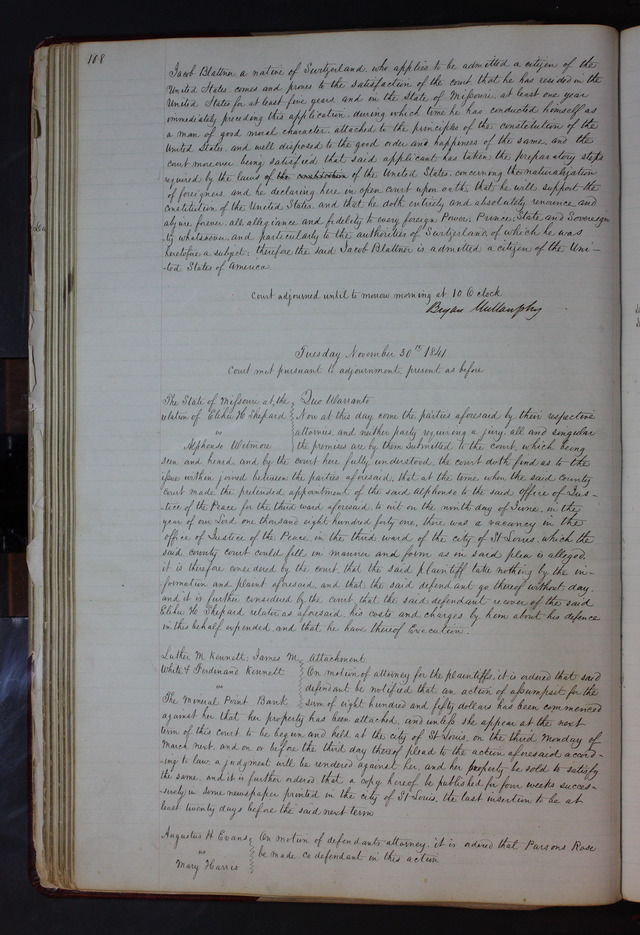 108
Jacob Blattner a native of Switzerland who applies to be admitted a citizen of the
United States comes and proves to the satisfaction of the court that he has resided in the
United States for at least five years and in the State of Missouri at least one year
immediately preceding this application during which time he has conducted himself as
a man of good moral character, attached to the principles of the constitution of the
United States and well disposed to the good order and happiness of the same and the
court moreover being satisfied that said applicant has taken the preparatory steps
required by the laws of the constitution of the United States concerning the naturalization
of foreigners, and he declaring here in open court upon oath, that he will support the
constitution of the United States and that he doth entirely and absolutely renounce and
abjure forever all allegiance and fidelity to every foreign Power, Prince, State and Sovereign-
ty whatsoever and particularly to the authorities of Switzerland of which he was
heretofore a subject; therefore the said Jacob Blattner is admitted a citizen of the Uni-
-ted States of America
Court adjourned until to morrow morning at 10 O clock
Bryan Mullanphy
Tuesday November 30th 1841
Court met pursuant to adjournment present as before
The State of Missouri at the Quo Warranto
relation of Elihu H Shepard Now at this day come the parties aforesaid by their respective
vs attornies, and neither party requiring a jury, all and singular
Alphonso Wetmore the premises are by them submitted to the court, which being
seen and heard and by the court here fully understood, the court doth find as to the
issue within joined between the parties aforesaid, that at the time when the said County
court made the pretended appointment of the said Alphonso to the said office of Jus-
tice of the Peace for the third ward aforesaid, to wit on the ninth day of June, in the
year of our Lord one thousand eight hundred forty one, there was a vacancy in the
office of Justice of the Peace in the third ward of the city of St Louis, which the
said county court could fill in manner and form as in said plea is alleged,
it is therefore considered by the court that the said plaintiff take nothing by the in-
formation and plaint aforesaid, and that the said defendant go thereof without day.
and it is further considered by the court, that the said defendant recover of the said
Elihu H Shepard relator as aforesaid his costs and charges by him about his defence
in this behalf expended, and that he have thereof Execution.
Luther M Kennett, James M. Attachment
White & Ferdinand Kennett On motion of attorney for the plaintiffs, it is ordered that said
vs defendant be notified that an action of assumpsit for the
The Mineral Point Bank sum of eight hundred and fifty dollars has been commenced
against her that her property has been attached, and unless she appear at the next
term of this court to be begun and held at the city of St Louis, on the third Monday of
March next, and on or before the third day thereof plead to the action aforesaid accord-
-ing to law a judgment will be rendered against her, and her property be sold to satisfy
the same, and it is further ordered that a copy hereof be published for four weeks succes-
-sively in some newspaper printed in the city of St Louis, the last insertion to be at
least twenty days before the said next term
Augustus H Evans On motion of defendants attorney, it is ordered that Parsons Rose
vs be made co defendant in this action
Mary Harris